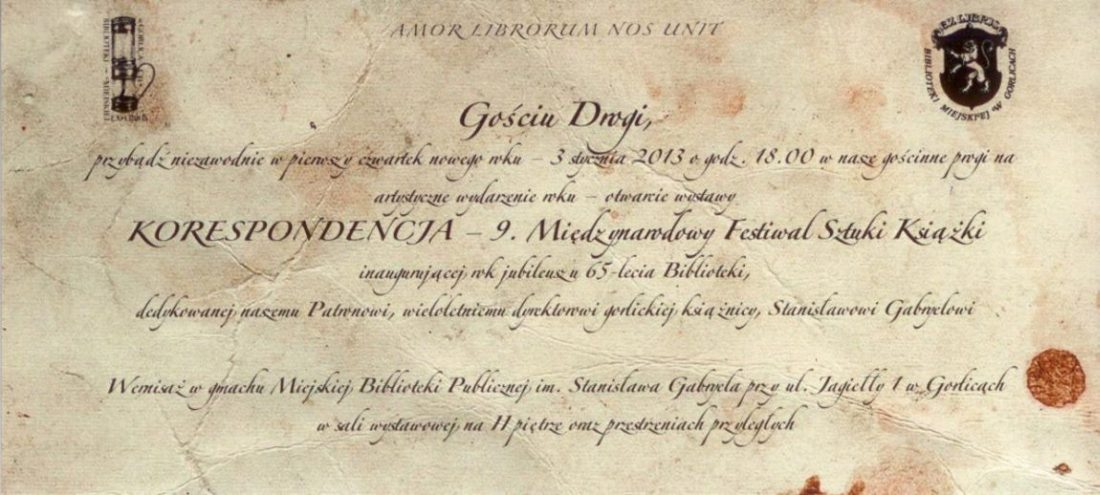 AMOR LIBRORUM NOS UNIT
EX LIBRIS
BIBLIOTEKI MIEJSKIEJ W GORLICACH
Gościu Drogi,
przybądź niezawodnie w pierwszy czwartek nowego roku – 3 stycznia 2013 o godz. 18.00 w nasze gościnne progi na
artystyczne wydarzenie roku – otwarcie wystawy
KORESPONDENCJA – 9. Międzynarodowy Festiwal Sztuki Książki
inaugurującej rok jubileuszu 65-lecia Biblioteki,
dedykowanej naszemu Patronowi, wieloletniemu dyrektorowi gorlickiej książnicy, Stanisławowi Gabryelowi
Wernisaż w gmachu Miejskiej Biblioteki Publicznej im. Stanisława Gabryela przy ul. Jagiełły 1 w Gorlicach
w sali wystawowej na II piętrze oraz przestrzeniach przyległych